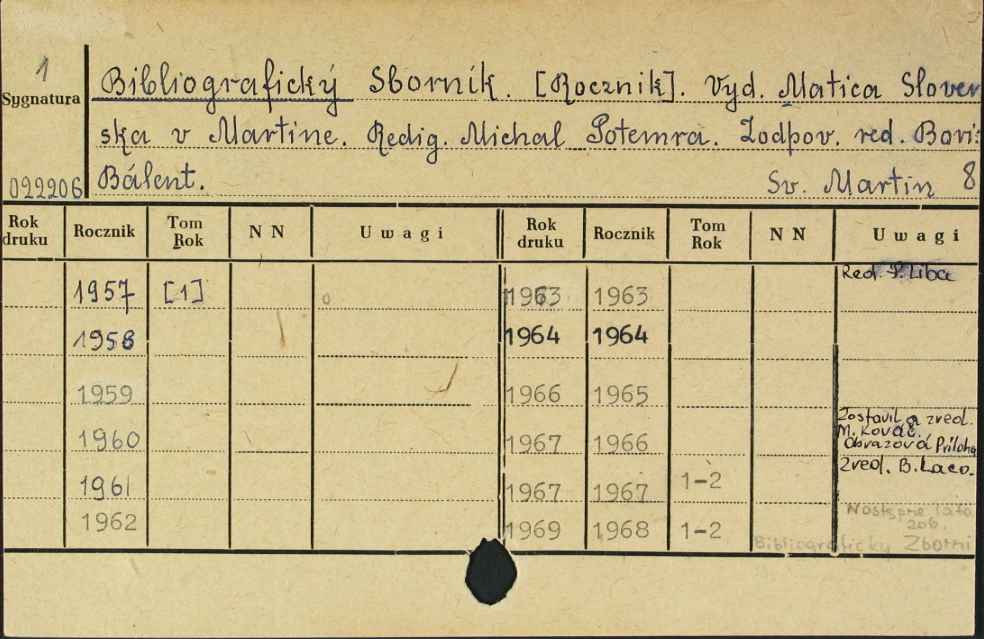 1
Sygnatura
022206
Bibliografický Sborník. [Rocznik]. Vyd. Matica Sloven
ska v Martine. Redig. Michal Potemra. Zodpov. red. Boris
Bálent. Sv. Martin 8
Rok druku Rocznik Tom Rok NN Uwagi Rok druku Rocznik Tom Rok NN Uwagi
1957 [1] 1963 1963 Red. P. Liba
1958 1964 1964
1959 1966 1965
1960 1967 1966 Zostavil a zred.
M. Kováč.
Obrazová Príloha
1961 1967 1967 1-2 Zred. B. Laco.
1962 1969 1968 1-2 Następne lata
206.
Bibliograficky Zborni